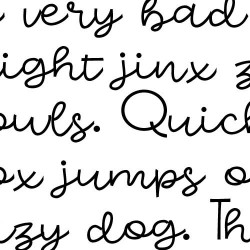 very bad
ight jinx z
uls. Quick
ox jumps o
zy dog. Th